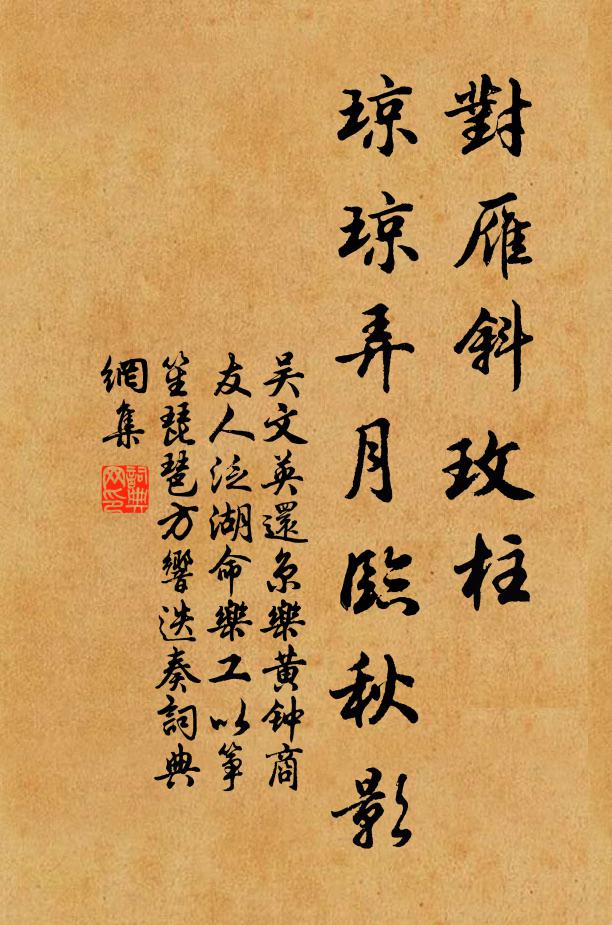 對雁斜玫柱
琼琼弄月臨秋影
吴文英還京樂黄钟商
友人泛湖命樂工以箏
笙琵琶方響迭奏詞典
網集
詞典
网印